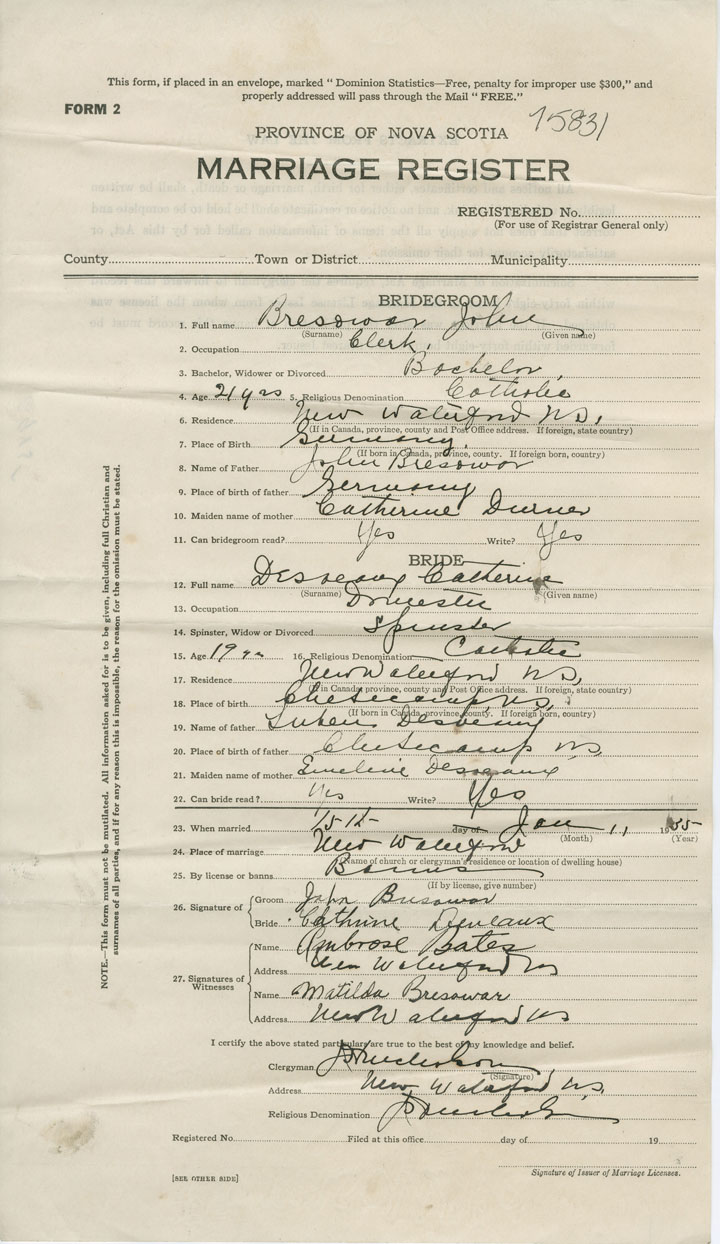 This form, if placed in an envelope, marked " Dominion Statistics—Free, penalty for improper use $300," and
properly addressed will pass through the Mail " FREE."
FORM 2
15831
PROVINCE OF NOVA SCOTIA
MARRIAGE REGISTER
REGISTERED No.
(For use of Registrar General only)
County Town or District Municipality
BRIDEGROOM
1. Full name Bresowar John
(Surname) (Given name)
2. Occupation Clerk.
3. Bachelor, Widower or Divorced Bachelor
4. Age 21 yrs 5. Religious Denomination Catholic
6. Residence New Waterford N.S.
(If in Canada, province, county and Post Office address. If foreign, state country)
7. Place of Birth Germany.
(If born in Canada, province, county. If foreign born, country)
8. Name of Father John Bresowar
9. Place of birth of father Germany
10. Maiden name of mother Catherine Durner
11. Can bridegroom read? Yes Write? Yes
BRIDE
12. Full name Desveaux Catherine
(Surname) (Given name)
13. Occupation Domestic
14. Spinster, Widow or Divorced Spinster
15. Age 19 yrs 16. Religious Denomination Catholic
17. Residence New Waterford N.S,
(If in Canada, province, county and Post Office address. If foreign, state country)
18. Place of birth Chetecamp N.S.
(If born in Canada, province, county. If foreign born, country)
19. Name of father Desveaux
20. Place of birth of father Chetecamp N.S
21. Maiden name of mother Emeline Desveaux
22. Can bride read? Yes Write? Yes
23. When married 15th day of Jan 1935
(Month) (Year)
24. Place of marriage New Waterford
(Name of church or clergyman's residence or location of dwelling house)
25. By license or banns Banns
(If by license, give number)
26. Signature of
Groom John Bresowar
Bride Cathrine Desveaux
27. Signatures of Witnesses
Name Ambrose Bates
Address New Waterford NS
Name Matilda Bresowar
Address New Waterford NS
I certify the above stated particulars are true to the best of my knowledge and belief.
Clergyman
(Signature)
Address New Waterford N.S.
Religious Denomination
Registered No. Filed at this office day of 19
Signature of Issuer of Marriage Licenses.
[SEE OTHER SIDE]
NOTE.—This form must not be mutilated. All information asked for is to be given, including full Christian and
surnames of all parties, and if for any reason this is impossible, the reason for the omission must be stated.